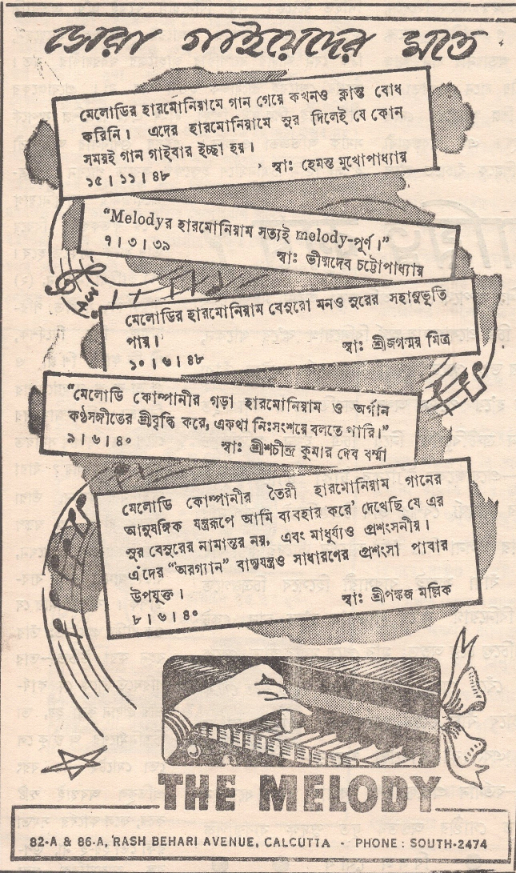 সেরা গাইয়েদের মতে
মেলোডির হারমোনিয়ামে গান গেয়ে কখনও ক্লান্ত বোধ
করিনি। এদের হারমোনিয়ামে সুর দিলেই যে কোন
সময়ই গান গাইবার ইচ্ছা হয়।
স্বাঃ হেমন্ত মুখোপাধ্যায়
১৫।১১।৪৮
“Melodyর হারমোনিয়াম সত্যই melody-পূর্ণ।”
৭।৩।৩৯
স্বাঃ ভীষ্মদেব চট্টোপাধ্যায়
মেলোডির হারমোনিয়াম বেসুরো মনও সুরের সহানুভূতি
পায়।
১০।৬।৪৮
স্বাঃ শ্রীজগন্ময় মিত্র
“মেলোডি কোম্পানীর গড়া হারমোনিয়াম ও অর্গান
কণ্ঠসঙ্গীতের শ্রীবৃদ্ধি করে, একথা নিঃসংশয়ে বলতে পারি।”
৯।৬।৪০
স্বাঃ শ্রীশচীন্দ্র কুমার দেব বর্ম্মা
মেলোডি কোম্পানীর তৈরী হারমোনিয়াম গানের
আনুষঙ্গিক যন্ত্ররূপে আমি ব্যবহার করে’ দেখেছি যে এর
সুর বেসুরের নামান্তর নয়, এবং মাধুর্য্যও প্রশংসনীয়।
এঁদের “অরগ্যান” বাদ্যযন্ত্রও সাধারণের প্রশংসা পাবার
উপযুক্ত।
স্বাঃ শ্রীপঙ্কজ মল্লিক
৮।৬।৪০
THE MELODY
82-A & 86-A, RASH BEHARI AVENUE, CALCUTTA - PHONE: SOUTH-2474